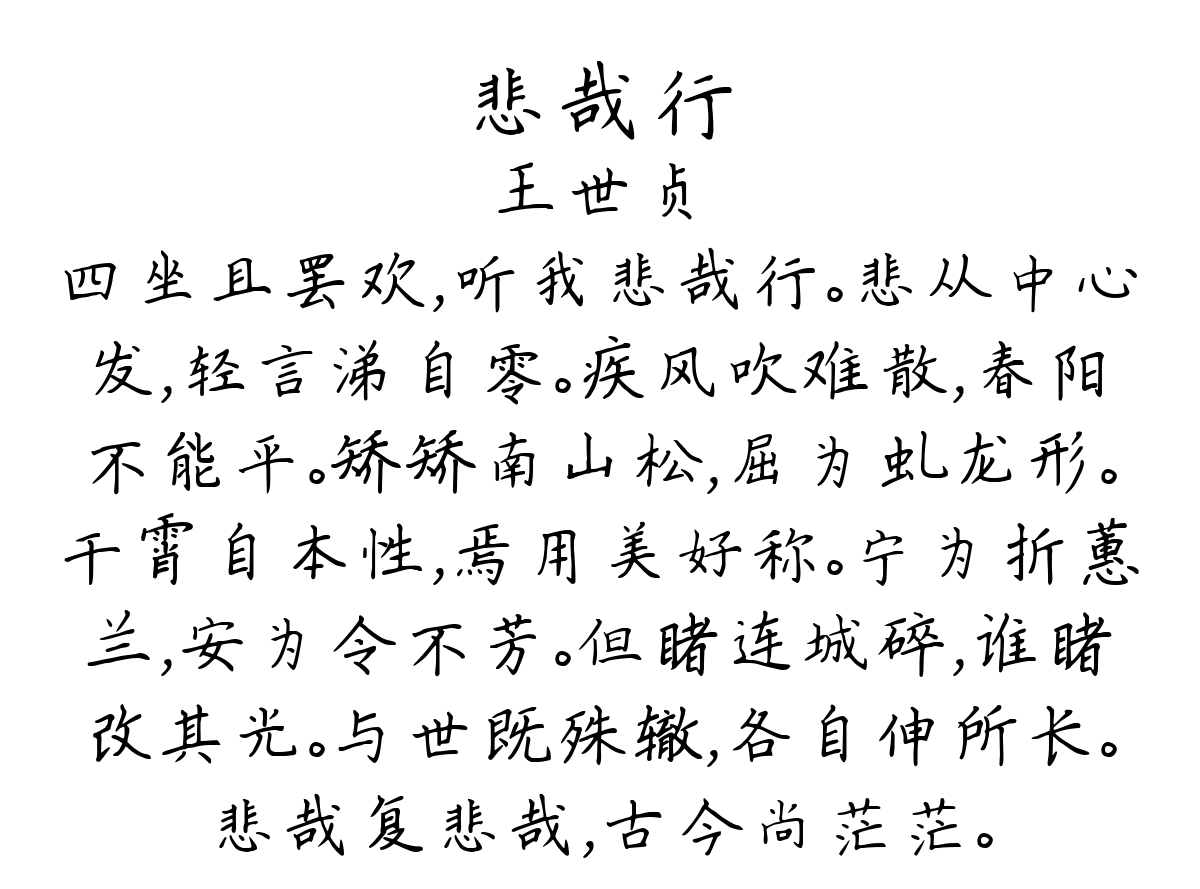 悲哉行
王世贞
四坐且罢欢,听我悲哉行。悲从中心
发,轻言涕自零。疾风吹难散,春阳
不能平。矫矫南山松,屈为虬龙形。
干霄自本性,焉用美好称。宁为折蕙
兰,安为令不芳。但睹连城碎,谁睹
改其光。与世既殊辙,各自伸所长。
悲哉复悲哉,古今尚茫茫。